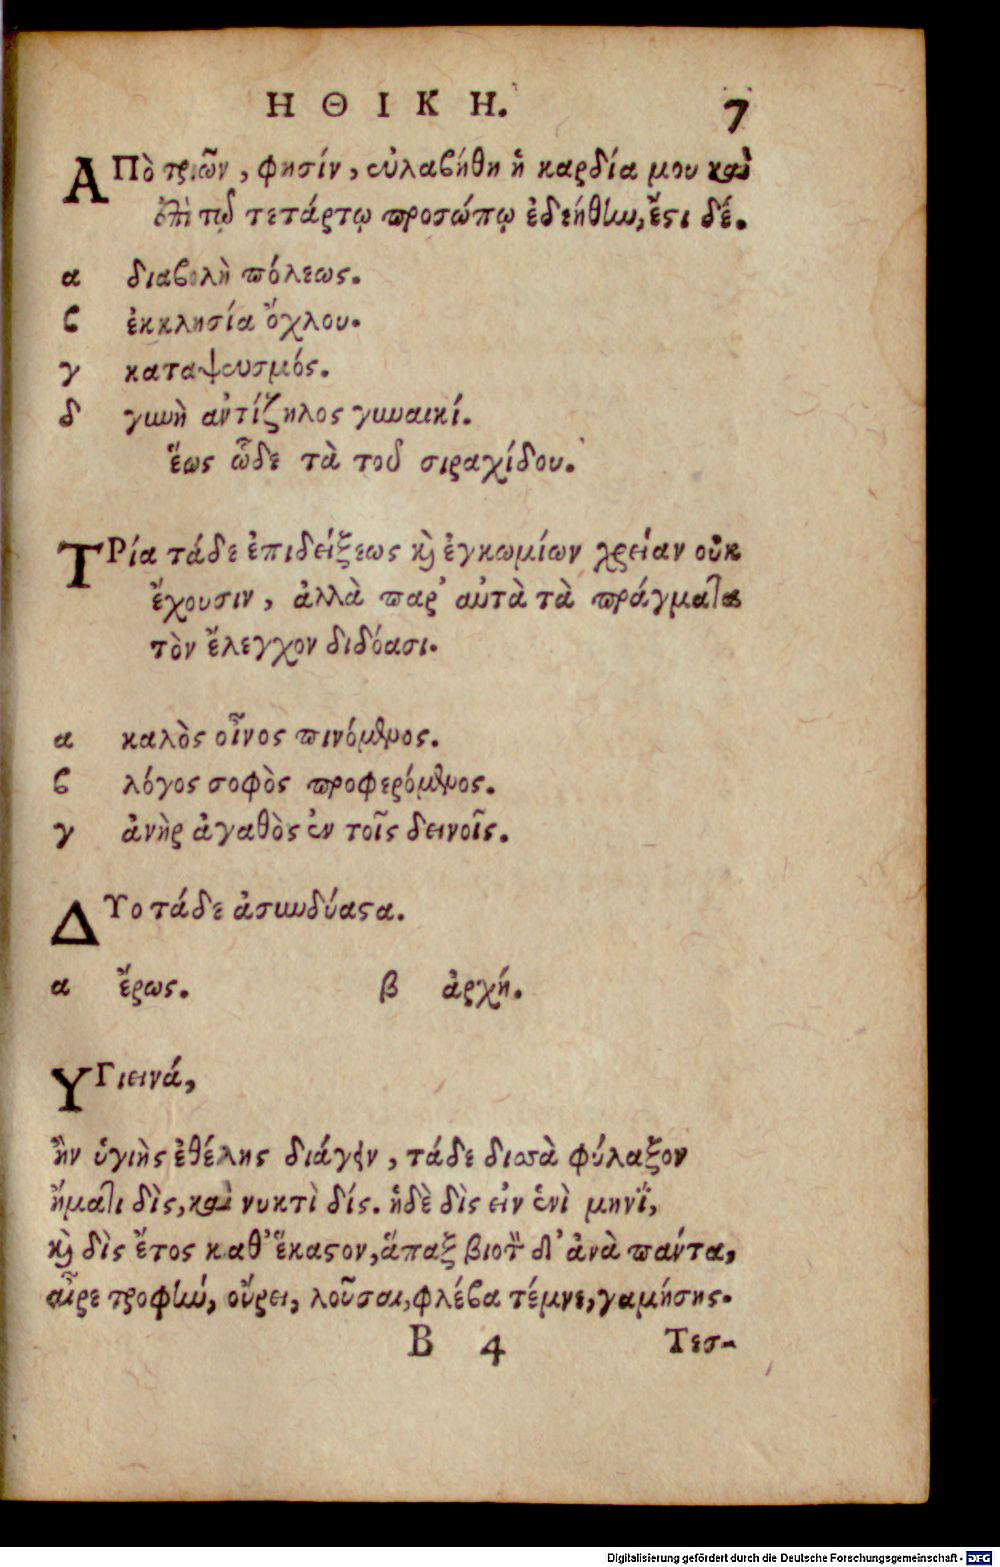 ΗΘΙΚΗ. 7
ΑΠὸ τριῶν, φησίν, εὐλαβήθη ἡ καρδία μου καὶ
ἐπὶ τῷ τετάρτῳ προσώπῳ ἐδεήθην, ἔστι δέ.
α διαβολὴ πόλεως.
ϛ ἐκκλησία ὄχλου.
γ καταψευσμός.
δ γυνὴ ἀντίζηλος γυναικί.
ἕως ὧδε τὰ τοῦ σιραχίδου.
ΤΡία τάδε ἐπιδείξεως καὶ ἐγκωμίων χρείαν οὐκ
ἔχουσιν, ἀλλὰ παρ’ αὐτὰ τὰ πράγματα
τὸν ἔλεγχον διδόασι.
α καλὸς οἶνος πινόμενος.
ϛ λόγος σοφὸς προφερόμενος.
γ ἀνὴρ ἀγαθὸς ἐν τοῖς δεινοῖς.
ΔΥο τάδε ἀσυνδύαστα.
α ἔρως. β ἀρχή.
ΥΓιεινά,
ἢν ὑγιὴς ἐθέλης διάγειν, τάδε δισσὰ φύλαξον
ἤματι δὶς, καὶ νυκτὶ δίς. ἠδὲ δὶς εἰν ἑνὶ μηνΐ,
καὶ δὶς ἔτος καθ’ ἕκαστον, ἅπαξ βιοτῆ δ’ ἀνὰ πάντα,
αἶρε τροφὴν, οὔρει, λοῦσαι, φλέβα τέμνε, γαμήσης.
Β 4 Τεσ-
Digitalisierung gefördert durch die Deutsche Forschungsgemeinschaft - DFG